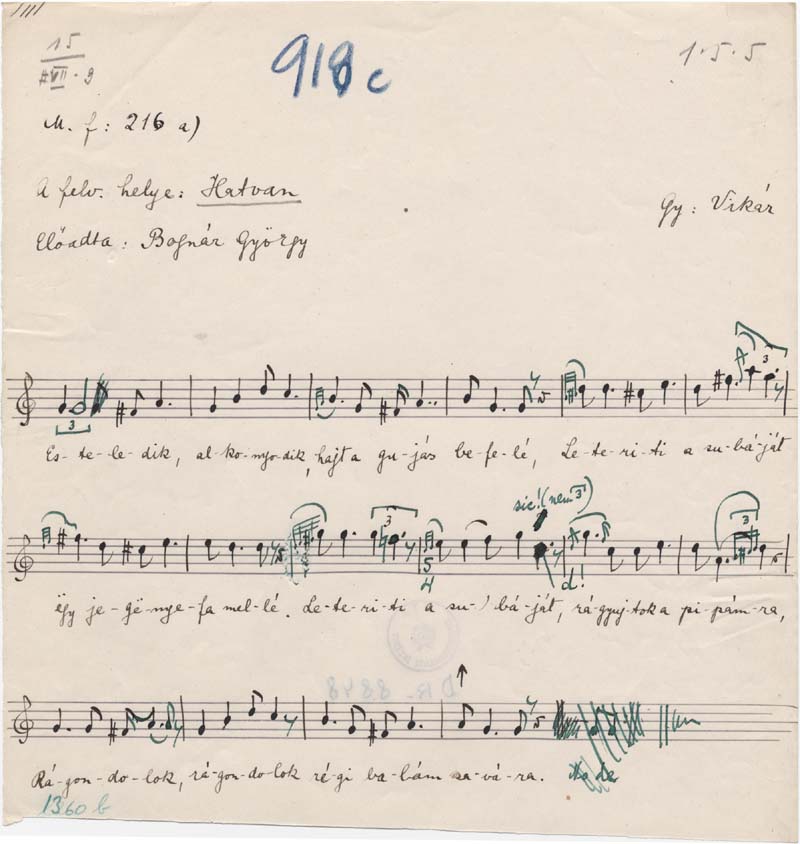 15
VII · 9
918 c
1 · 5 · 5
M. f : 216 a)
A felv. helye : Hatvan
Gy : Vikár
Előadta : Bognár György
3
3
Es-te-le-dik, al-ko-nyo-dik, hajt a gu-jás be-fe-lé, Le-te-ri-ti a su-bá-ját
3
sic! (nem 3)
5
4
d!
3
ëgy je-gë-nye-fa mel-lé. Le-te-ri-ti a su-) bá-ját, rá-gyuj-tok a pi-pám-ra,
Rá-gon-do-lok, rá-gon-do-lok ré-gi ba-bám sa-vá-ra.
1360 b